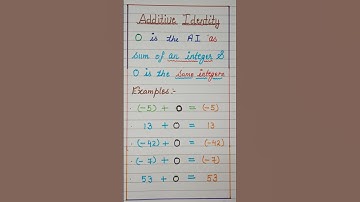 Additive Identity
0 is the A I as
sum of an integer &
0 is the same integere
Examples:-
• (-5) + 0 = (-5)
• 13 + 0 = 13
• (-42) + 0 = (-42)
• (-7) + 0 = (-7)
• 53 + 0 = 53